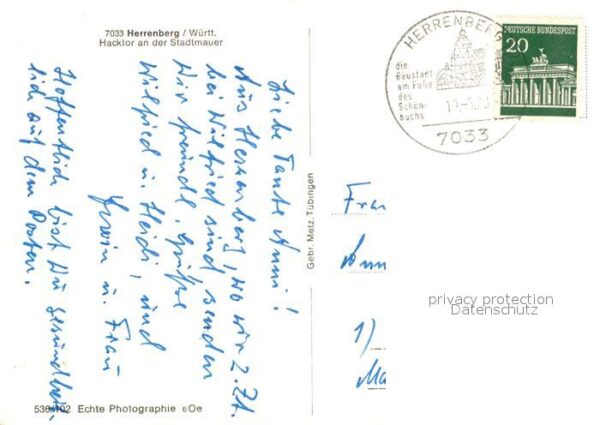 7033 Herrenberg / Württ.
Hacktor an der Stadtmauer
Liebe Tante Anni!
Aus Herrenberg, wo wir z. Zt.
bei Wilfried sind, senden
Dir freundl. Grüße
Wilfried u. Heidi, und
Erwin u. Frau
Hoffentlich bist Du gesundheit-
lich auf dem Posten.
538/102 Echte Photographie εOe
Gebr. Metz, Tübingen
HERRENBERG
die
Gaustadt
am Fuße
des
Schön-
buchs
7033
DEUTSCHE BUNDESPOST
20
Frau
Ann
1)
Ma
privacy protection
Datenschutz